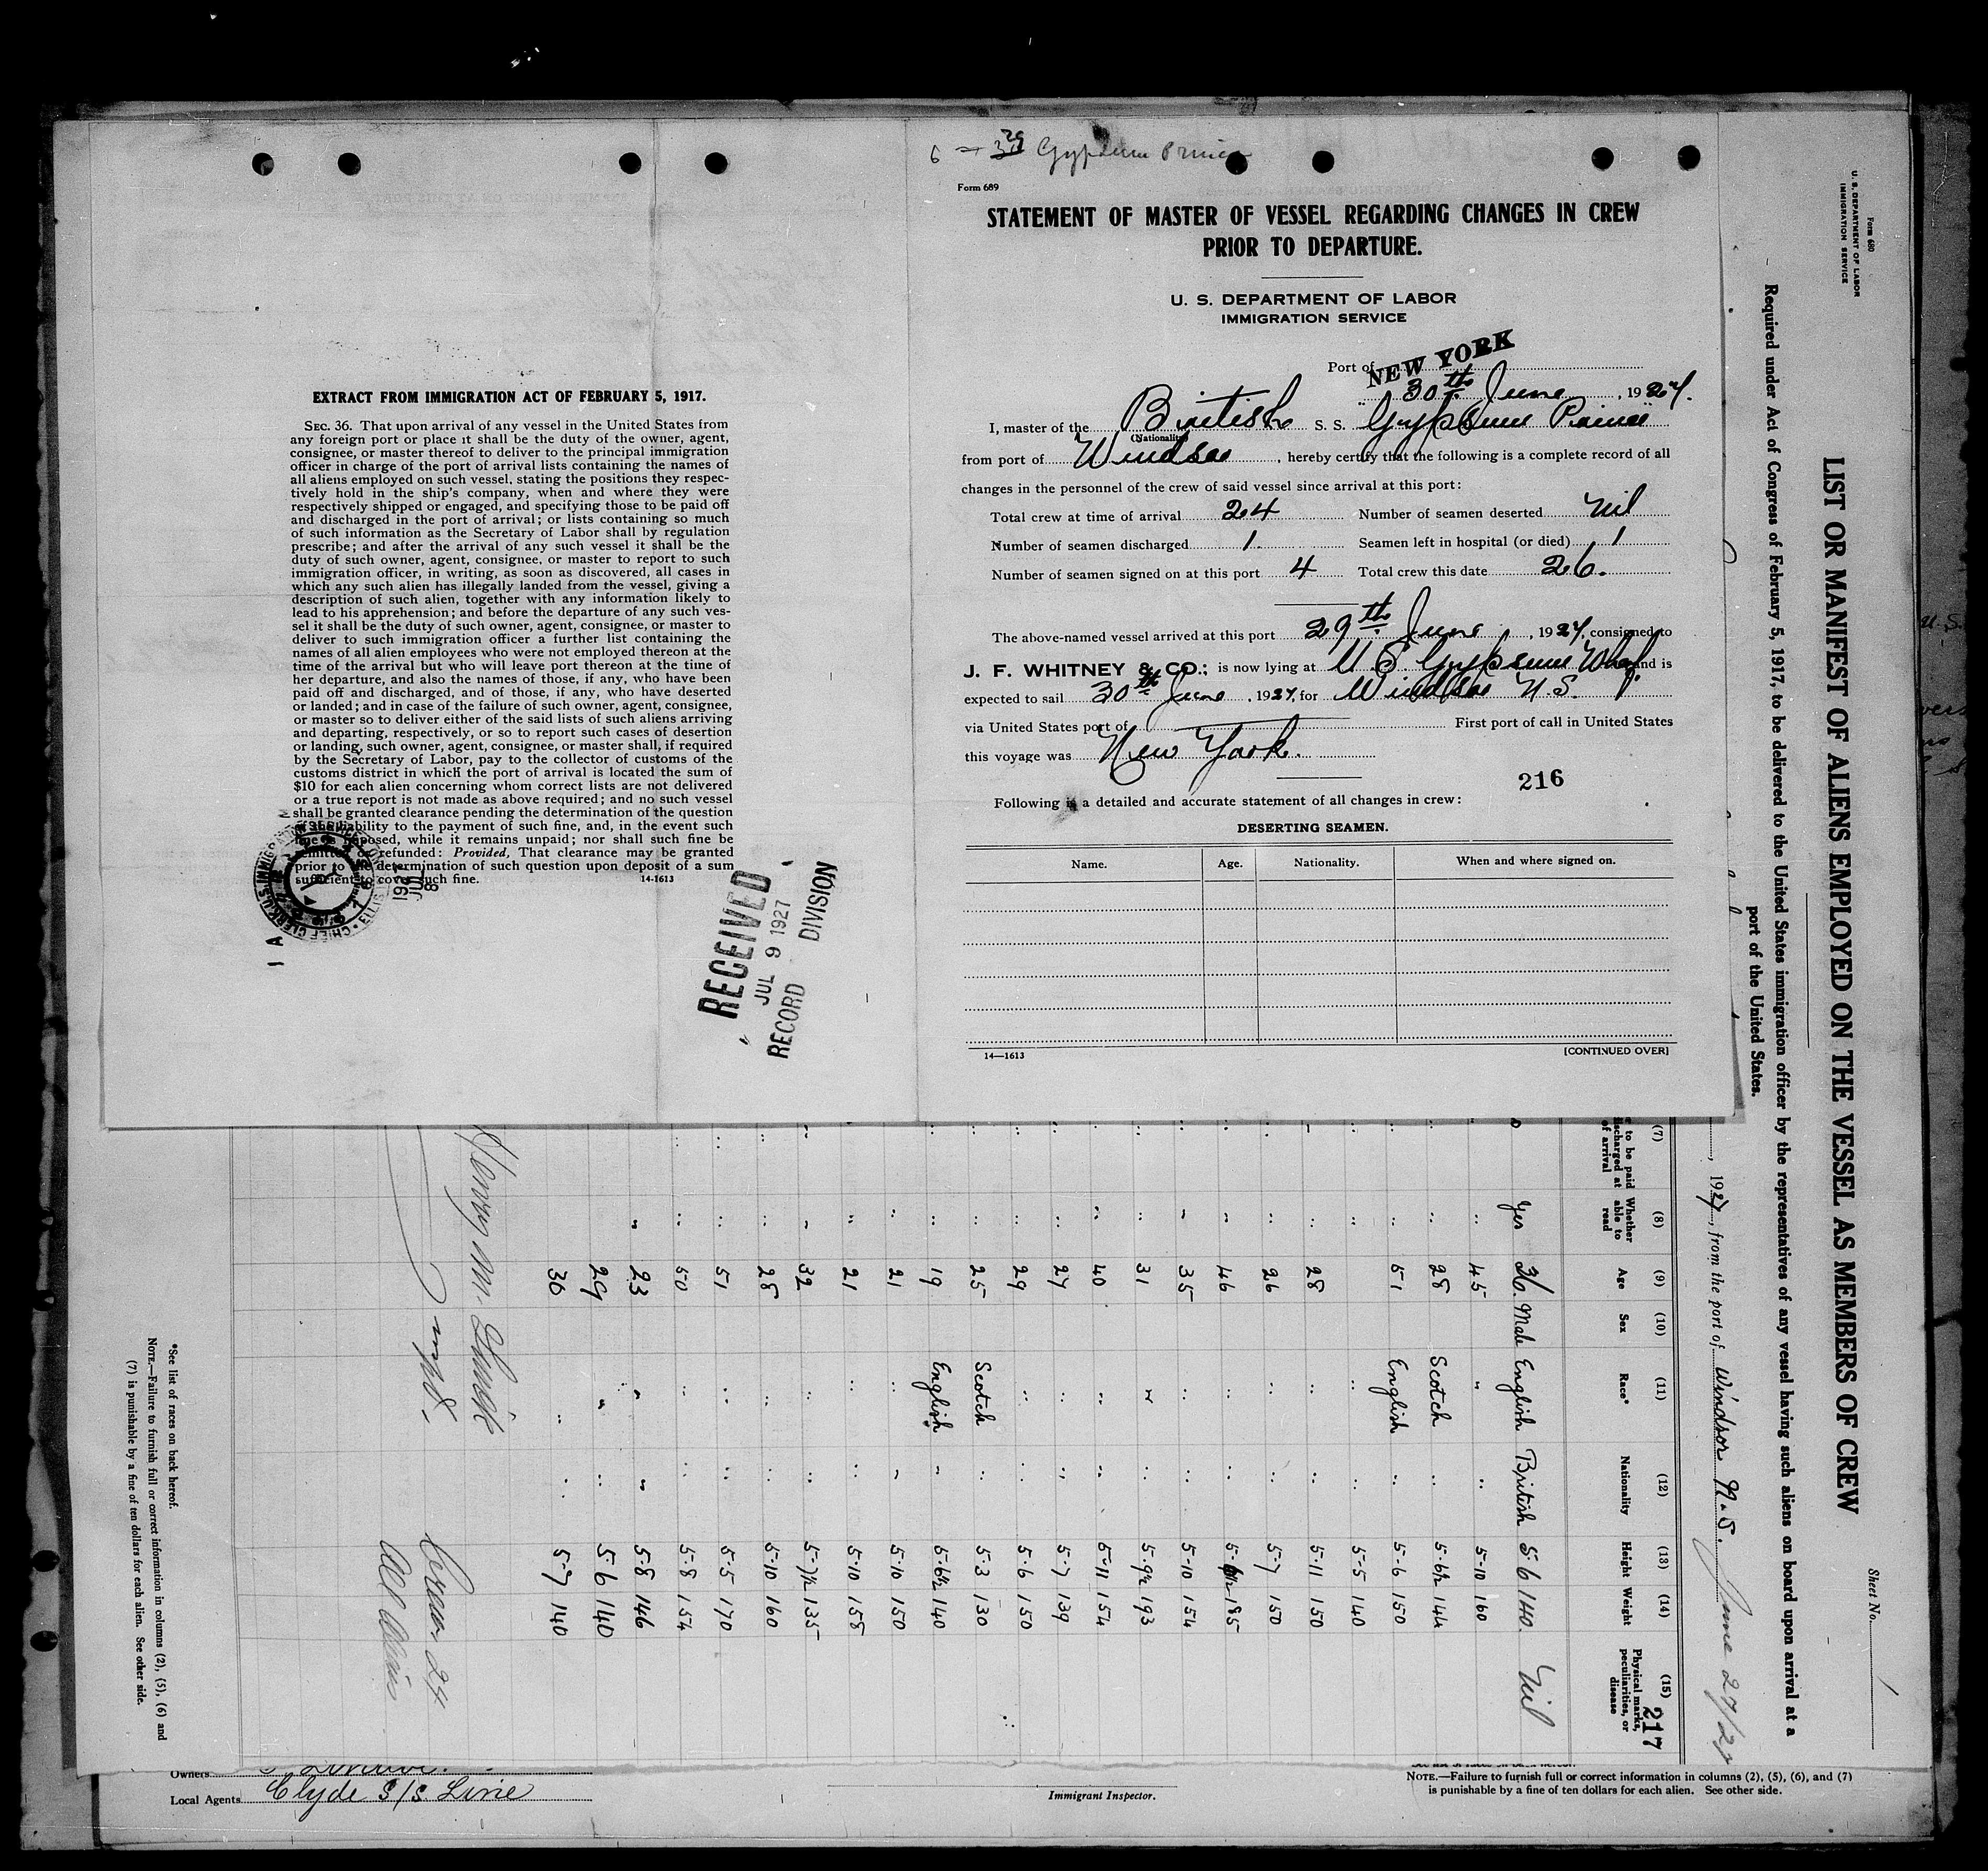 EXTRACT FROM IMMIGRATION ACT OF FEBRUARY 5, 1917.
SEC. 36. That upon arrival of any vessel in the United States from
any foreign port or place it shall be the duty of the owner, agent,
consignee, or master thereof to deliver to the principal immigration
officer in charge of the port of arrival lists containing the names of
all aliens employed on such vessel, stating the positions they respec-
tively hold in the ship's company, when and where they were
respectively shipped or engaged, and specifying those to be paid off
and discharged in the port of arrival; or lists containing so much
of such information as the Secretary of Labor shall by regulation
prescribe; and after the arrival of any such vessel it shall be the
duty of such owner, agent, consignee, or master to report to such
immigration officer, in writing, as soon as discovered, all cases in
which any such alien has illegally landed from the vessel, giving a
description of such alien, together with any information likely to
lead to his apprehension; and before the departure of any such ves-
sel it shall be the duty of such owner, agent, consignee, or master to
deliver to such immigration officer a further list containing the
names of all alien employees who were not employed thereon at the
time of the arrival but who will leave port thereon at the time of
her departure, and also the names of those, if any, who have been
paid off and discharged, and of those, if any, who have deserted
or landed; and in case of the failure of such owner, agent, consignee,
or master so to deliver either of the said lists of such aliens arriving
and departing, respectively, or so to report such cases of desertion
or landing, such owner, agent, consignee, or master shall, if required
by the Secretary of Labor, pay to the collector of customs of the
customs district in which the port of arrival is located the sum of
$10 for each alien concerning whom correct lists are not delivered
or a true report is not made as above required; and no such vessel
shall be granted clearance pending the determination of the question
of the liability to the payment of such fine, and, in the event such
fine is imposed, while it remains unpaid; nor shall such fine be
remitted or refunded: Provided, That clearance may be granted
prior to the determination of such question upon deposit of a sum
sufficient to cover such fine.
14-1613
1927 JUL 8
RECEIVED
JUL 9 1927
RECORD DIVISION
Gypsum Prince
Form 689
STATEMENT OF MASTER OF VESSEL REGARDING CHANGES IN CREW
PRIOR TO DEPARTURE.
U. S. DEPARTMENT OF LABOR
IMMIGRATION SERVICE
Port of NEW YORK
30th June, 1927.
I, master of the British S. S. "Gypsum Prince"
(Nationality)
from port of Windsor, hereby certify that the following is a complete record of all
changes in the personnel of the crew of said vessel since arrival at this port:
Total crew at time of arrival 24 Number of seamen deserted Nil
Number of seamen discharged 1. Seamen left in hospital (or died) 1
Number of seamen signed on at this port 4 Total crew this date 26.
The above-named vessel arrived at this port 29th June, 1927, consigned to
J. F. WHITNEY & CO.; is now lying at U.S. Gypsum Wharf and is
expected to sail 30th June, 1927, for Windsor N.S.
via United States port of First port of call in United States
this voyage was New York.
216
Following is a detailed and accurate statement of all changes in crew:
DESERTING SEAMEN.
Name. Age. Nationality. When and where signed on.
14—1613 [CONTINUED OVER]
Form 680
U. S. DEPARTMENT OF LABOR
IMMIGRATION SERVICE
Sheet No. 1
LIST OR MANIFEST OF ALIENS EMPLOYED ON THE VESSEL AS MEMBERS OF CREW
Required under Act of Congress of February 5, 1917, to be delivered to the United States immigration officer by the representatives of any vessel having such aliens on board upon arrival at a
port of the United States.
, 1927, from the port of Windsor N.S. June 27/27
217
(7) (8) (9) (10) (11) (12) (13) (14) (15)
to be paid discharged at of arrival Whether able to read Age Sex Race* Nationality Height Weight Physical marks, peculiarities, or disease
Yes 36. Male English British 5-6 140. Nil
" 45 " " 5-10 160
" 28 Scotch " 5-6½ 144
" 51 English " 5-6 150
" " " 5-5 140
" 28 " " 5-11 150
" 26 " " 5-7 150
" 46 " " 185
" 35 " " 5-10 154
" 31 " " 5-9½ 193
" 40 " " 5-11 154
" 27 " " 5-7 139
" 29 " " 5-6 150
" 25 Scotch " 5-3 130
" 19 English " 5-6½ 140
" 21 " " 5-10 150
" 21 " " 5-10 158
" 32 " " 5-7½ 135
" 28 " " 5-10 160
" 51 " " 5-5 170
" 50 " " 5-8 154
" 23 " " 5-8 146
" 29 " " 5-6 140
30 " " 5-7 140
Henry M.
Crew 24
All
*See list of races on back hereof.
NOTE.—Failure to furnish full or correct information in columns (2), (5), (6) and
(7) is punishable by a fine of ten dollars for each alien. See other side.
Owners
Local Agents Clyde S/S Line
Immigrant Inspector.
NOTE.—Failure to furnish full or correct information in columns (2), (5), (6), and (7)
is punishable by a fine of ten dollars for each alien. See other side.